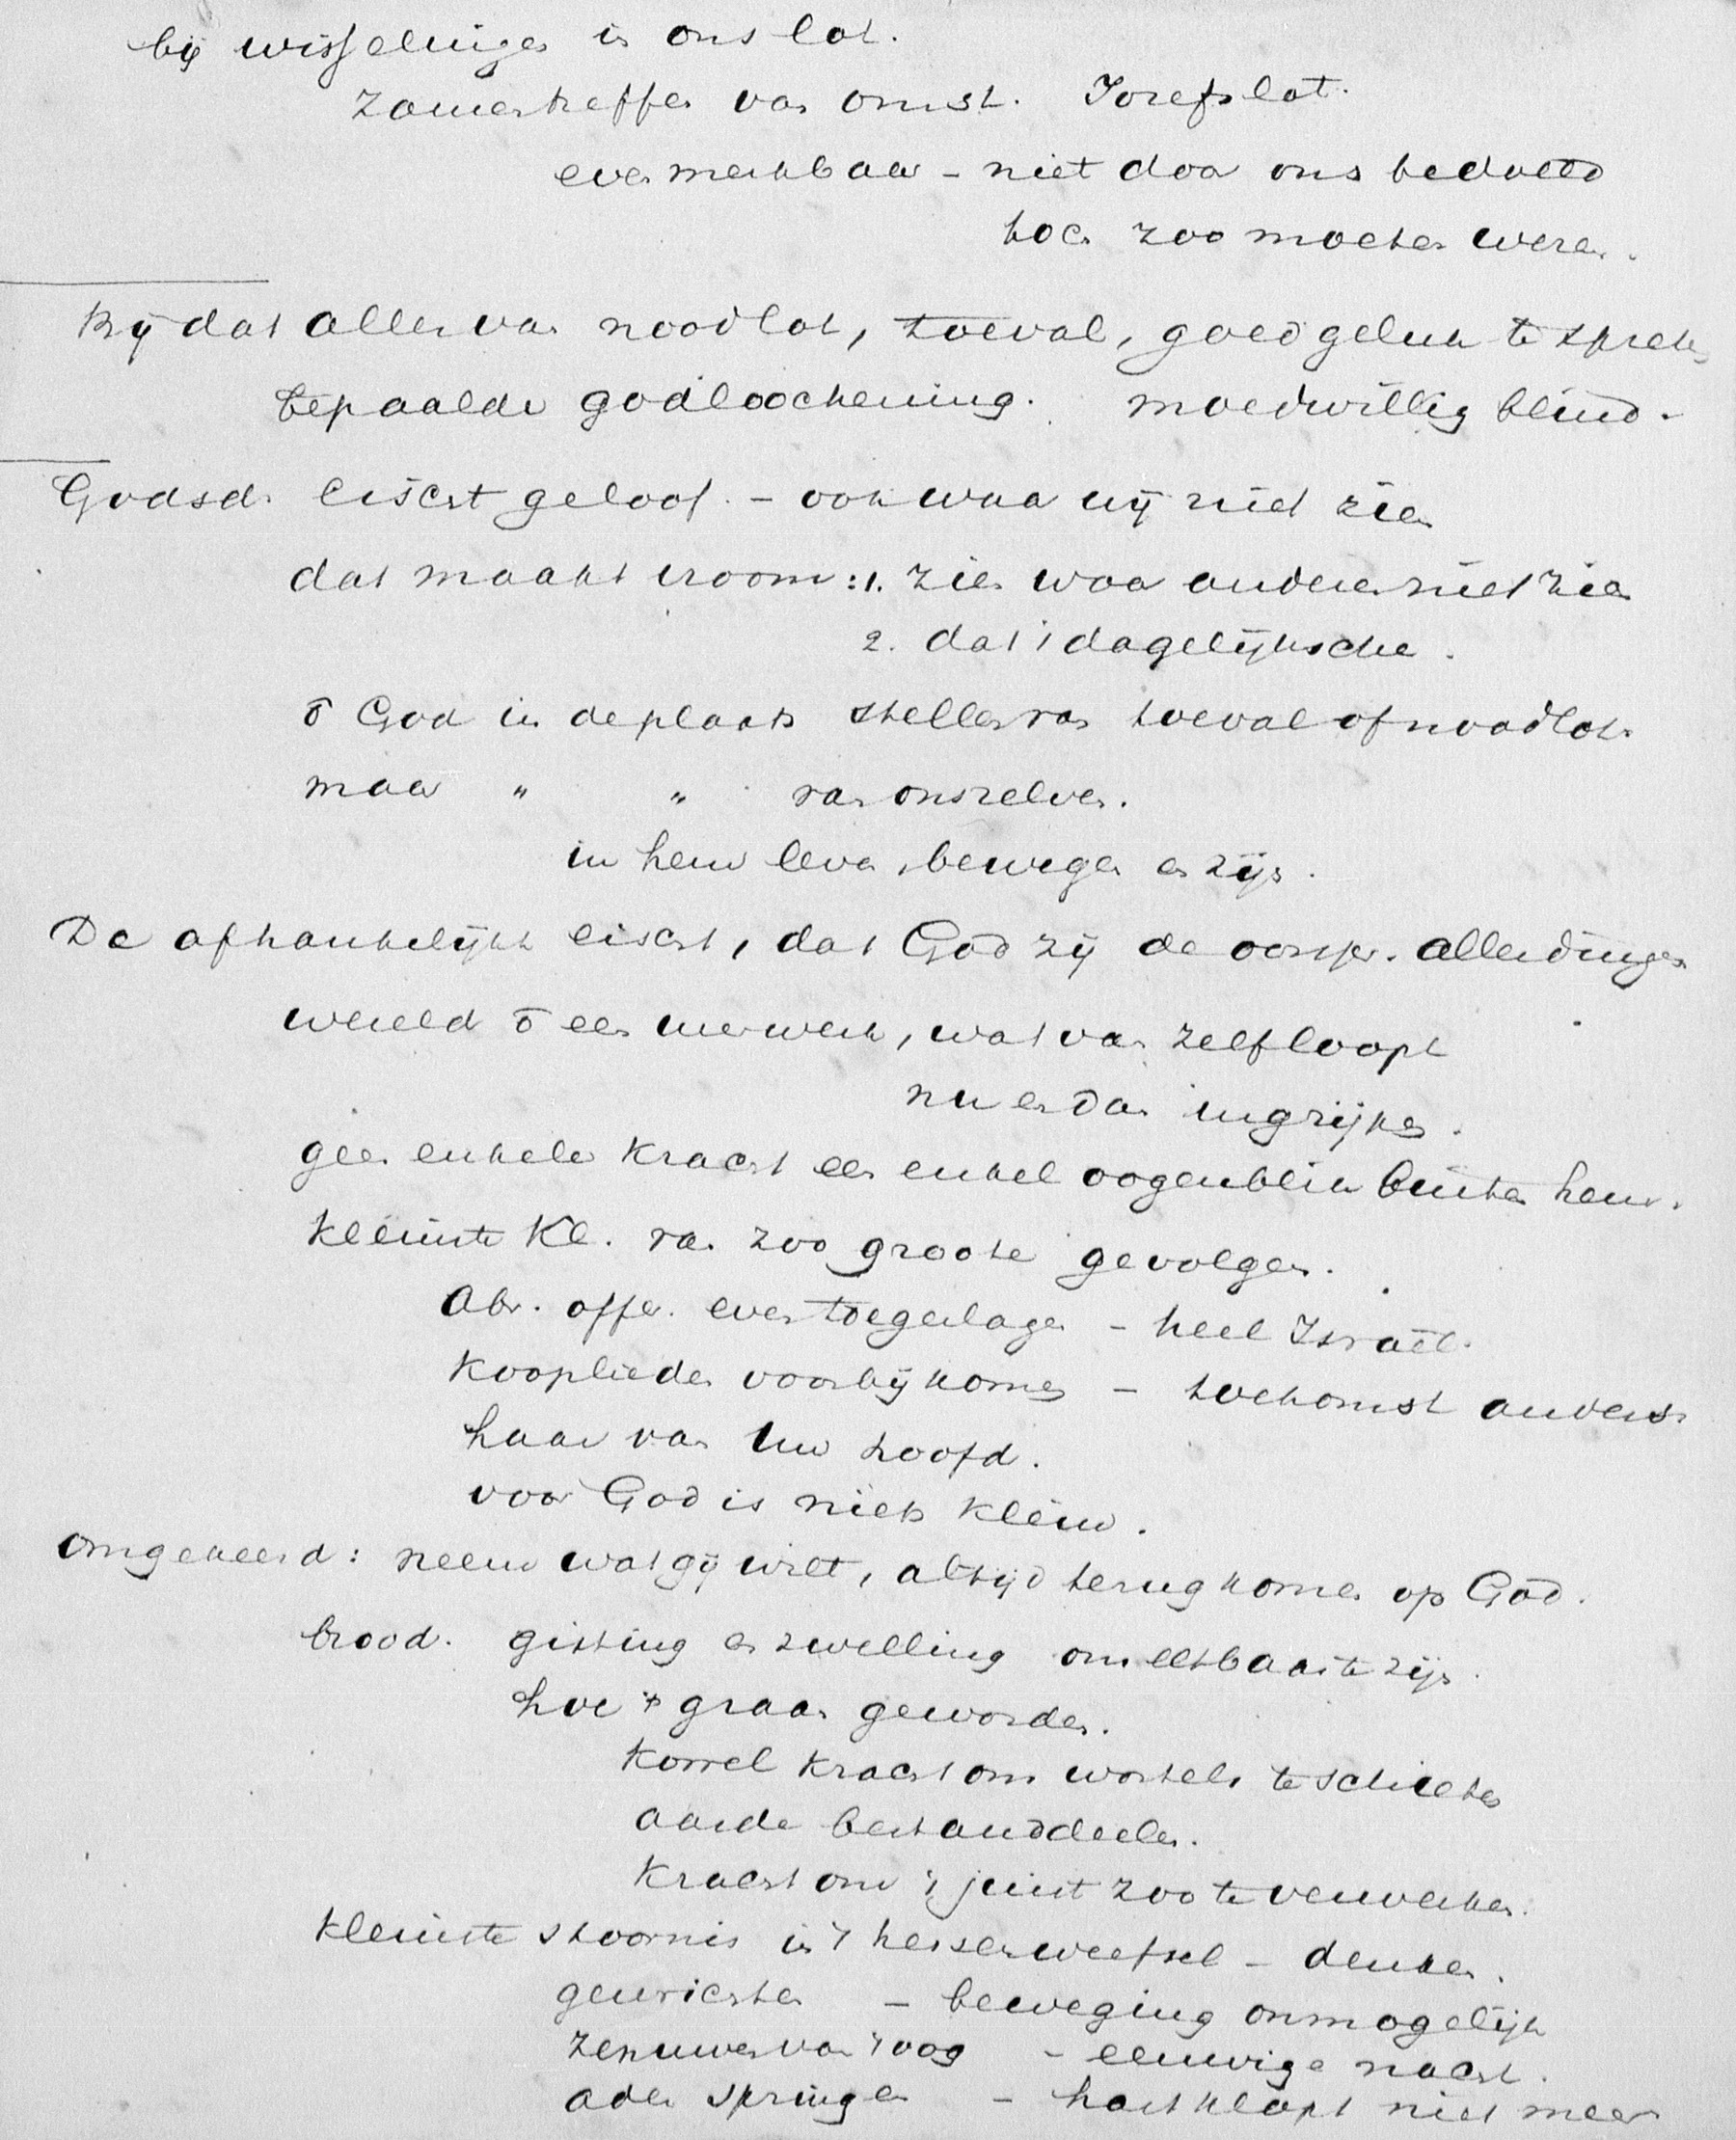 bij wisselingen in ons lot.
zamentreffen van omst. Jozefs lot.
even merkbaar - niet door ons bedoeld
toen zoo moeten wezen.
Bij dat alles van noodlot, toeval, goed geluk te spreken
bepaalde godloochening. moedwillig blind.
Godsd. eischt geloof. - ook waar wij niet zien
dat maakt vroom: 1. zien waar anderen niet zien
2. dat 't dagelijksche.
ō God in de plaats stellen van toeval of noodlot.
maar " " van onszelven.
in hem leven, bewegen en zijn.
De afhankelijkh eischt, dat God zij de oorspr. aller dingen
wereld ō een uurwerk, wat van zelf loopt
nu en dan ingrijpen.
geen enkele kracht een enkel oogenblik buiten hem.
kleinste kl. van zoo groote gevolgen.
Abr. offer. even toegeslagen - heel Israël.
kooplieden voorbijkomen - toekomst anders.
haar van Uw hoofd.
voor God is niets klein.
Omgekeerd: neem wat gij wilt, altijd terugkomen op God.
brood. gisting en zwelling om eetbaar te zijn.
hoe 't graan geworden.
korrel kracht om wortels te schieten
aarde bestanddeelen.
kracht om 't juist zoo te verwerken.
kleinste stoornis in 't hersenweefsel - denken.
gewrichten - beweging onmogelijk
zenuwen van 't oog - eeuwige nacht.
ader springen - hart klopt niet meer